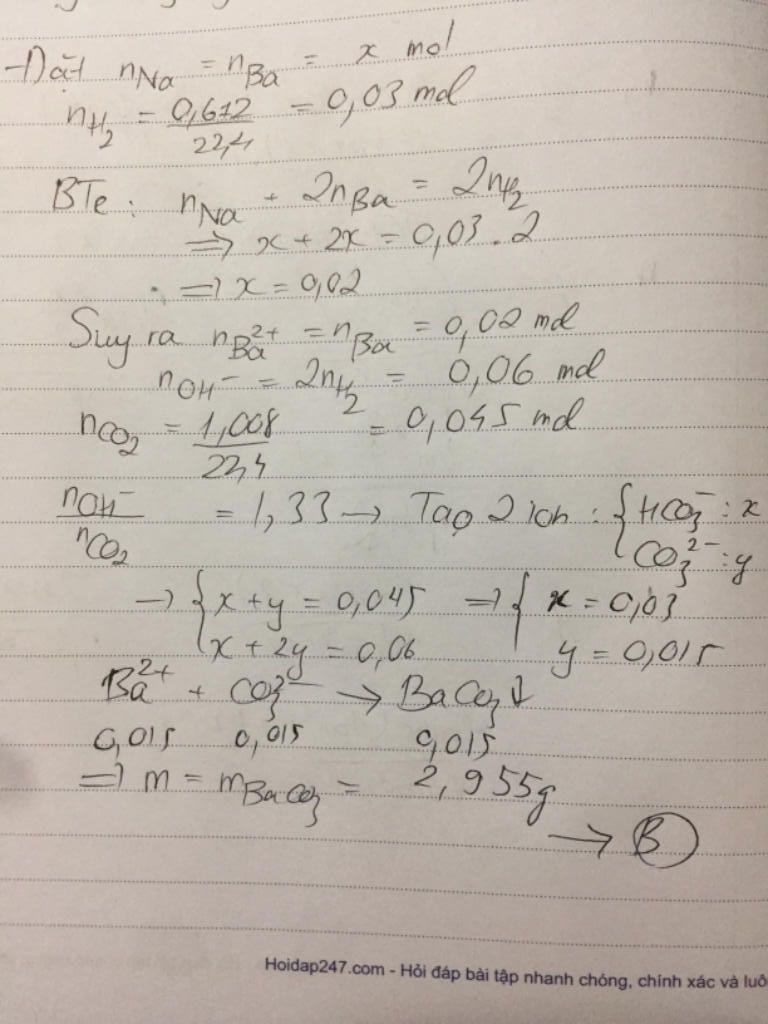 -Đặt nNa = nBa = x mol
nH2 = 0,672/22,4 = 0,03 mol
BTe: nNa + 2nBa = 2nH2
=> x + 2x = 0,03.2
=> x = 0,02
Suy ra nBa2+ = nBa = 0,02 mol
nOH- = 2nH2 = 0,06 mol
nCO2 = 1,008/22,4 = 0,045 mol
nOH-/nCO2 = 1,33 → Tạo 2 ion : { HCO3- : x
CO3 2- : y
→ { x + y = 0,045 => { x = 0,03
x + 2y = 0,06 y = 0,015
Ba2+ + CO3 2- → BaCO3↓
0,015 0,015 0,015
=> m = mBaCO3 = 2,955g
→ B
Hoidap247.com - Hỏi đáp bài tập nhanh chóng, chính xác và luô